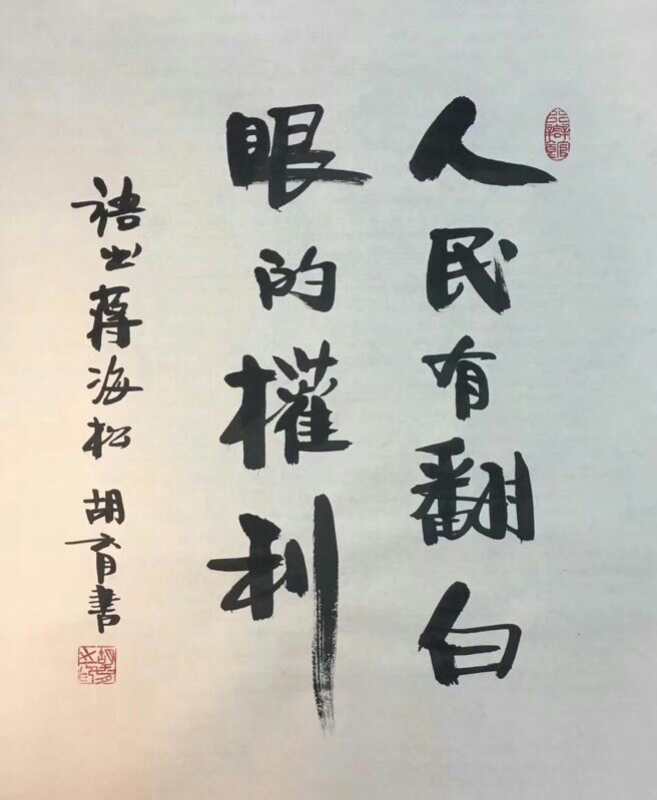 人民有翻白
眼的權利
语出蒋海松 胡育書